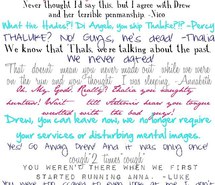 Never Thought I'd say this, but I agree with Drew
and her terrible penmanship. -Nico
What the Hades?! Di Angelo, you ship Thaluke?!? -Percy
THALUKE? NO! GUYS, he's dead! -Thalia
We know that Thals, we're talking about the past.
We never dated!
"That doesn't mean you never made out while we were
on the run and you thought I was sleeping. -Annabeth
Oh. My. Gods! Really? Thalia you naughty
huntress! Wait till Artemis hears your tongue
with the bad guys!
Drew, you can leave now, we no longer require
your services or disturbing mental images.
Yes! Go Away Drew! And it was only once!
*cough* 2 times *cough*
YOU WEREN'T THERE WHEN WE FIRST
STARTED RUNNING ANNA. -LUKE